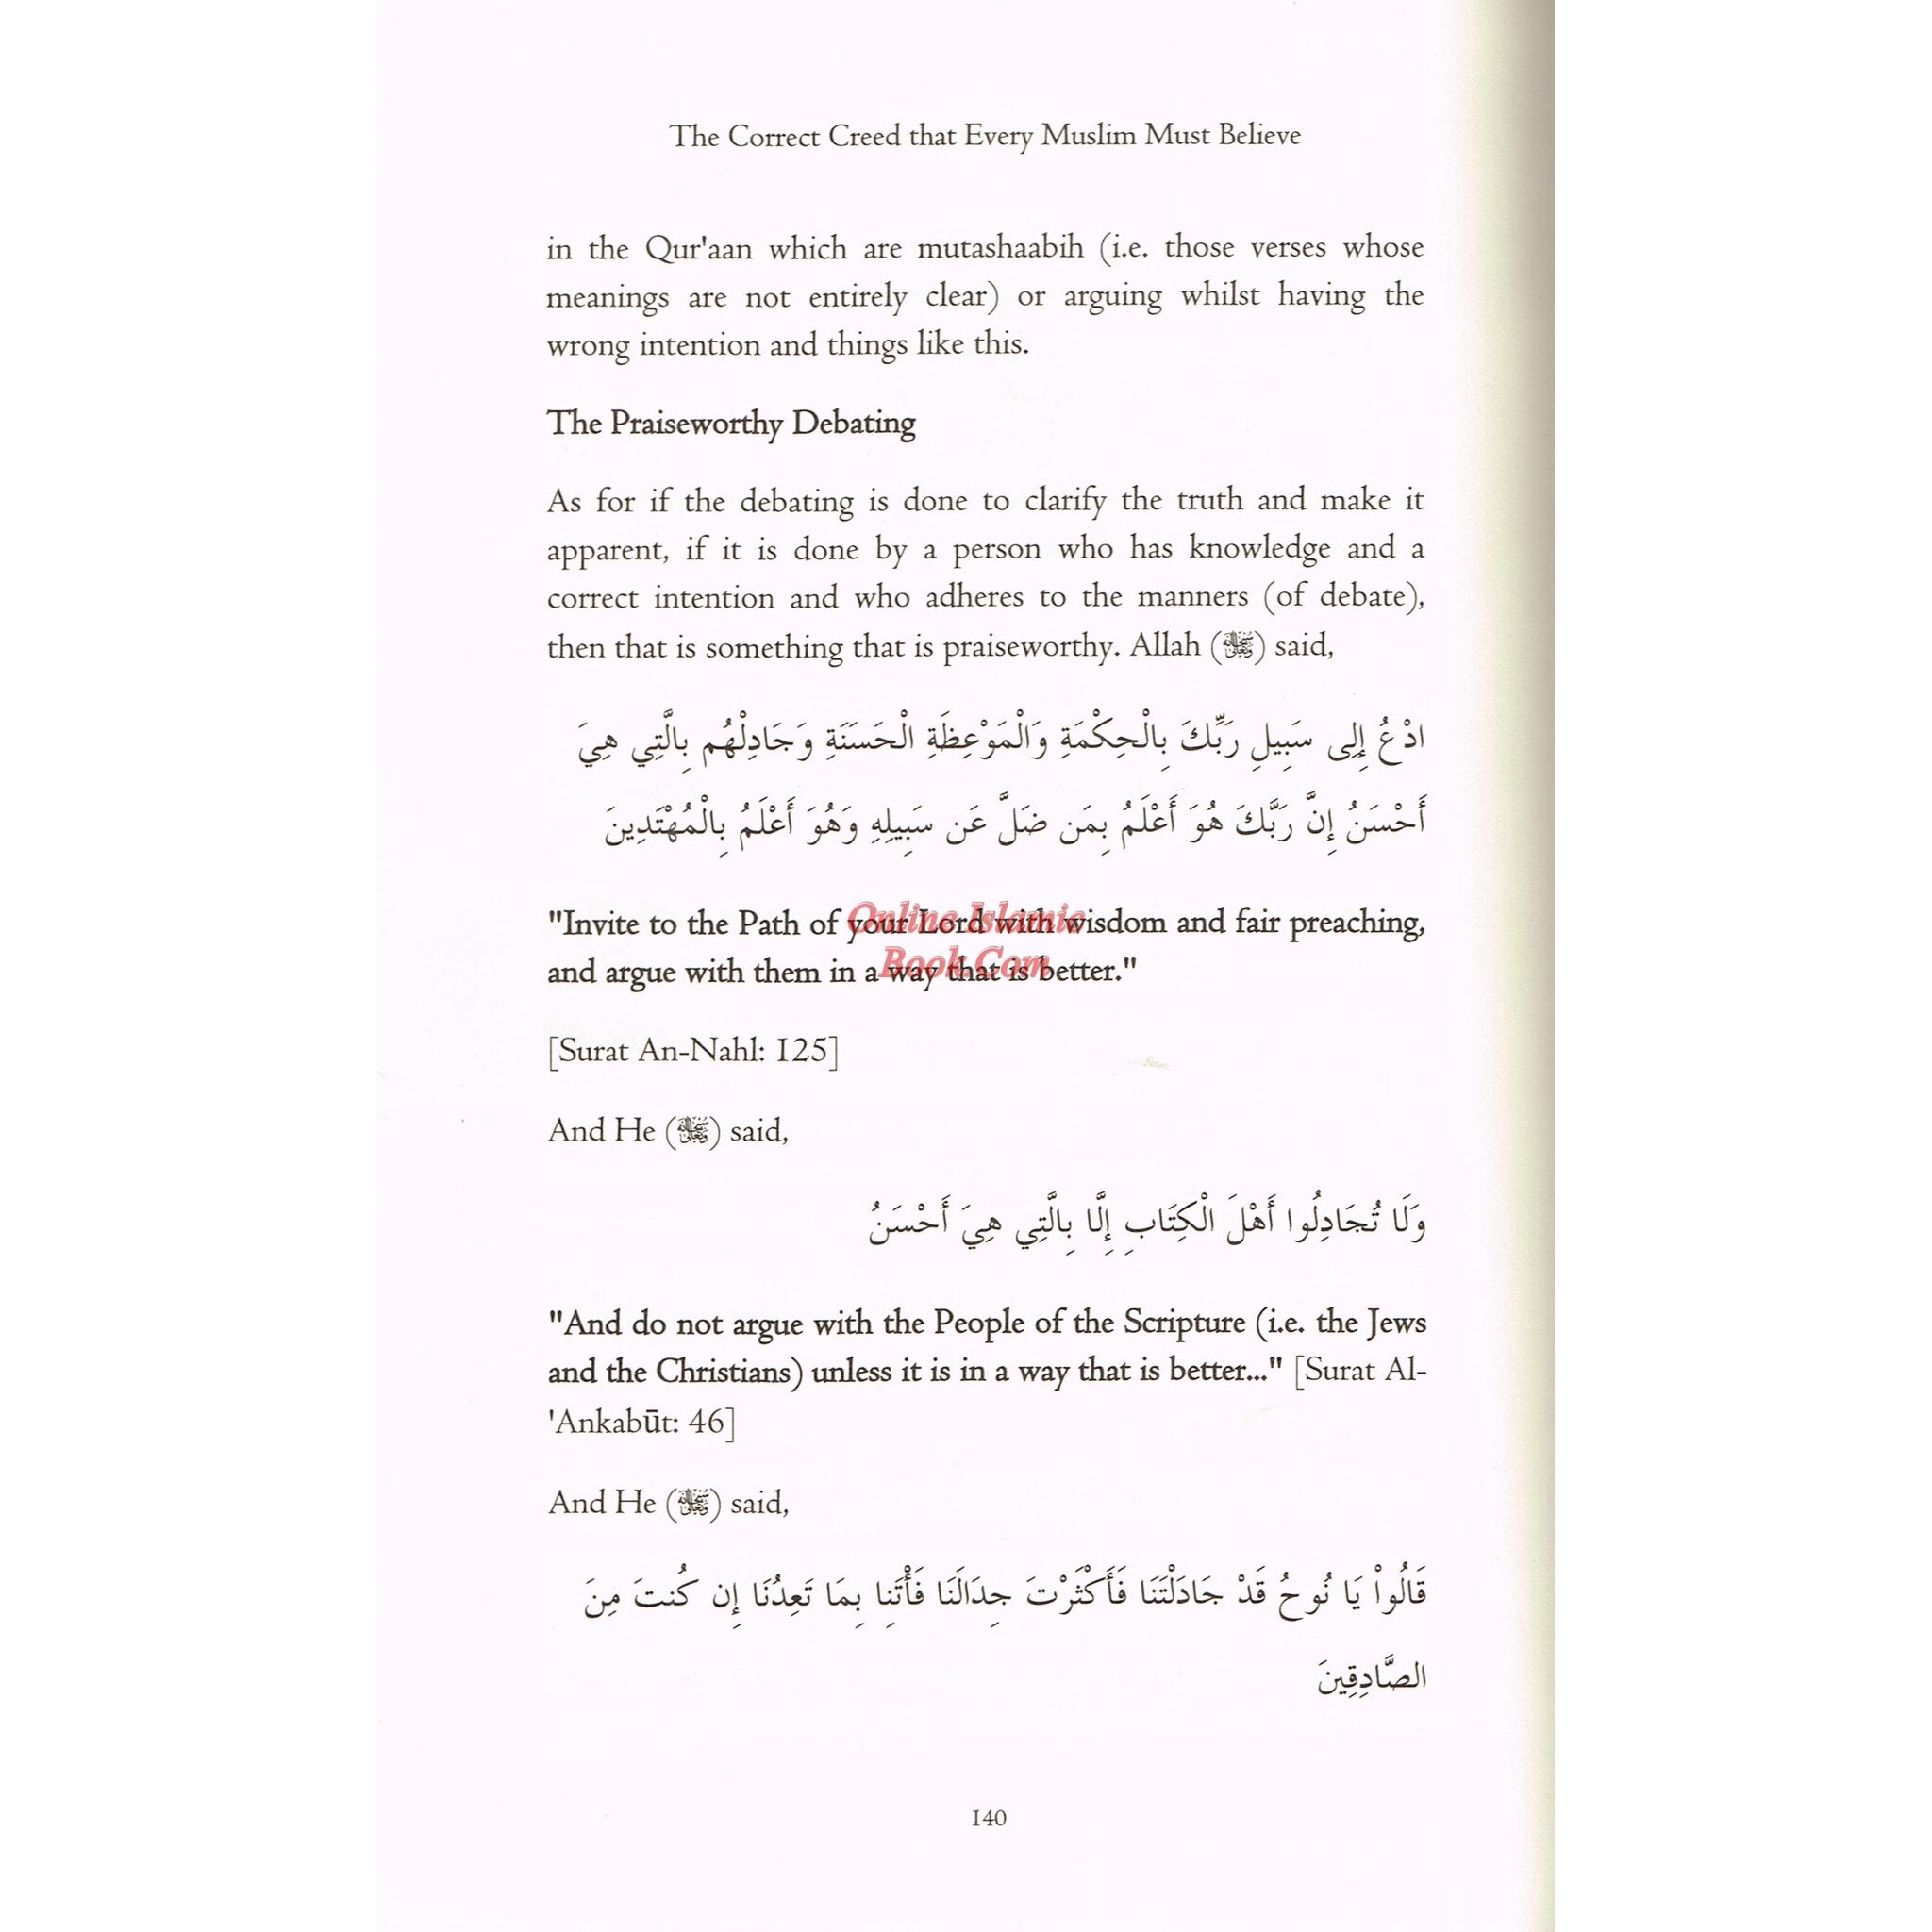 The Correct Creed that Every Muslim Must Believe
in the Qur'aan which are mutashaabih (i.e. those verses whose
meanings are not entirely clear) or arguing whilst having the
wrong intention and things like this.
The Praiseworthy Debating
As for if the debating is done to clarify the truth and make it
apparent, if it is done by a person who has knowledge and a
correct intention and who adheres to the manners (of debate),
then that is something that is praiseworthy. Allah (ﷻ) said,
ادْعُ إِلِى سَبِيلِ رَبِّكَ بِالْحِكْمَةِ وَالْمَوْعِظَةِ الْحَسَنَةِ وَجَادِلْهُم بِالَّتِي هِيَ
أَحْسَنُ إِنَّ رَبَّكَ هُوَ أَعْلَمُ بِمَن ضَلَّ عَن سَبِيلِهِ وَهُوَ أَعْلَمُ بِالْمُهْتَدِينَ
"Invite to the Path of your Lord with wisdom and fair preaching,
and argue with them in a way that is better."
Online Islamic
Book.Com
[Surat An-Nahl: 125]
And He (ﷻ) said,
وَلَا تُجَادِلُوا أَهْلَ الْكِتَابِ إِلَّا بِالَّتِي هِيَ أَحْسَنُ
"And do not argue with the People of the Scripture (i.e. the Jews
and the Christians) unless it is in a way that is better..." [Surat Al-
'Ankabūt: 46]
And He (ﷻ) said,
قَالُواْ يَا نُوحُ قَدْ جَادَلْتَنَا فَأَكْثَرْتَ جِدَالَنَا فَأْتَنِا بِمَا تَعِدُنَا إِن كُنتَ مِنَ
الصَّادِقِينَ
140